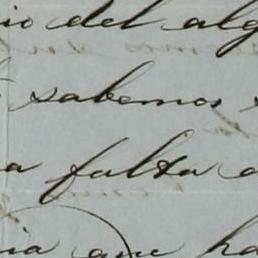 io del alg
sabemos
a falta
ia que ha